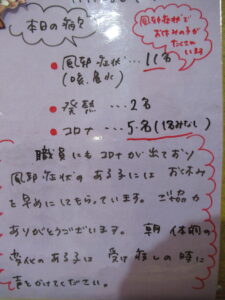 本日の病気
風邪症状で
お休みの子が
たくさん
います
• 風邪症状…11名
(咳、鼻水)
• 発熱…2名
• コロナ…5名(1名みなし)
職員にもコロナが出ており
風邪症状のある子にはお休み
を早めにしてもらっています。ご協力
ありがとうございます。朝 体調の
変化のある子は受け渡しの時に
声をかけてください。